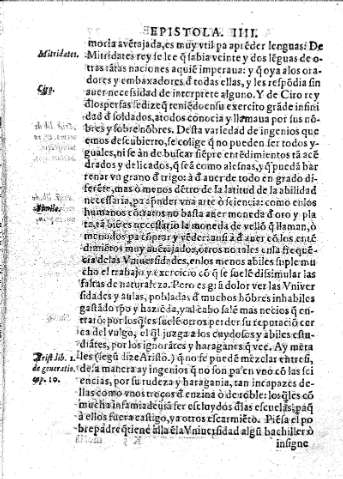 EPISTOLA. IIII.
moria avẽtajada, es muy vtil pa aprẽder lenguas: De
Mitridates.
Mitridates rey se lee q̃ sabia veinte y dos lẽguas de o-
tras tãtas naciones aquiẽ imperaua: y q̃ oya a los ora
dores y embaxadores đ todas ellas, y les respõdia sin
Cyg.
auer necessidad de interprete alguno. Y de Ciro rey
đ los persas se dize q̃ teniẽdo en su exercito grãde infini
dad đ soldados, a todos conocia y llamaua por sus nõ
bres y sobre nõbres. Desta variedad de ingenios que
emos descubierto, se colige q̃ no pueden ser todos y-
guales, ni se ãn de buscar siẽpre entẽdimientos tã acẽ
drados y delicados, q̃ seã como alesnas, y q̃ pueda bar
renar vn grano đ trigo: à đ auer de todo en grado di-
ferẽte, mas ò menos dẽtro de la latitud de la abilidad
necessaria, pa apreder vna arte ò sciencia: como en los
humanos cõtratos no basta auer moneda đ oro y pla
ta, tã biẽ es necessario la moneda de vellõ q̃ llaman, ò
menudos pa cõprar y vẽder
dimiẽtos muy avẽtajados, otros no tales en la freque
cia de las Vniuersidades, en los menos abiles suple mu
cho el trabajo y exercicio cõ q̃ se suele dissimular las
faltas de naturaleza. Pero es grã dolor ver las Vniuer
sidades y aulas, pobladas đ muchos hõbres inhabiles
gastãdo tpo y haziẽda, y al cabo salẽ mas necios q̃ en-
traro: por los q̃les suelẽ otros perder su reputaciõ cer
ca del vulgo, el q̃l juzga a los cuydosos y abiles estu-
diãtes, por los ignorãtes y haraganes q̃ vee. Ay meta
Arist. lib. 1.
les (segũ dize Aristo.) q̃ no se puedẽ mezclar entresi,
de generatio.
desta manera ay ingenios q̃ no son pa en vno cõ las sci
cap. 10.
encias, por su rudeza y haragania, tan incapazes de-
llas como vnos troços đ enzina ò de roble: los q̃les cõ
mucha infamia deuiã ser escluydos đ las escuelas, paq̃
a ellos fuera castigo, ya otros escarmiẽto. Piẽsa el po
bre padre q̃ tiene allà ẽ la Vniuersidad algũ bachiller ò
insigne